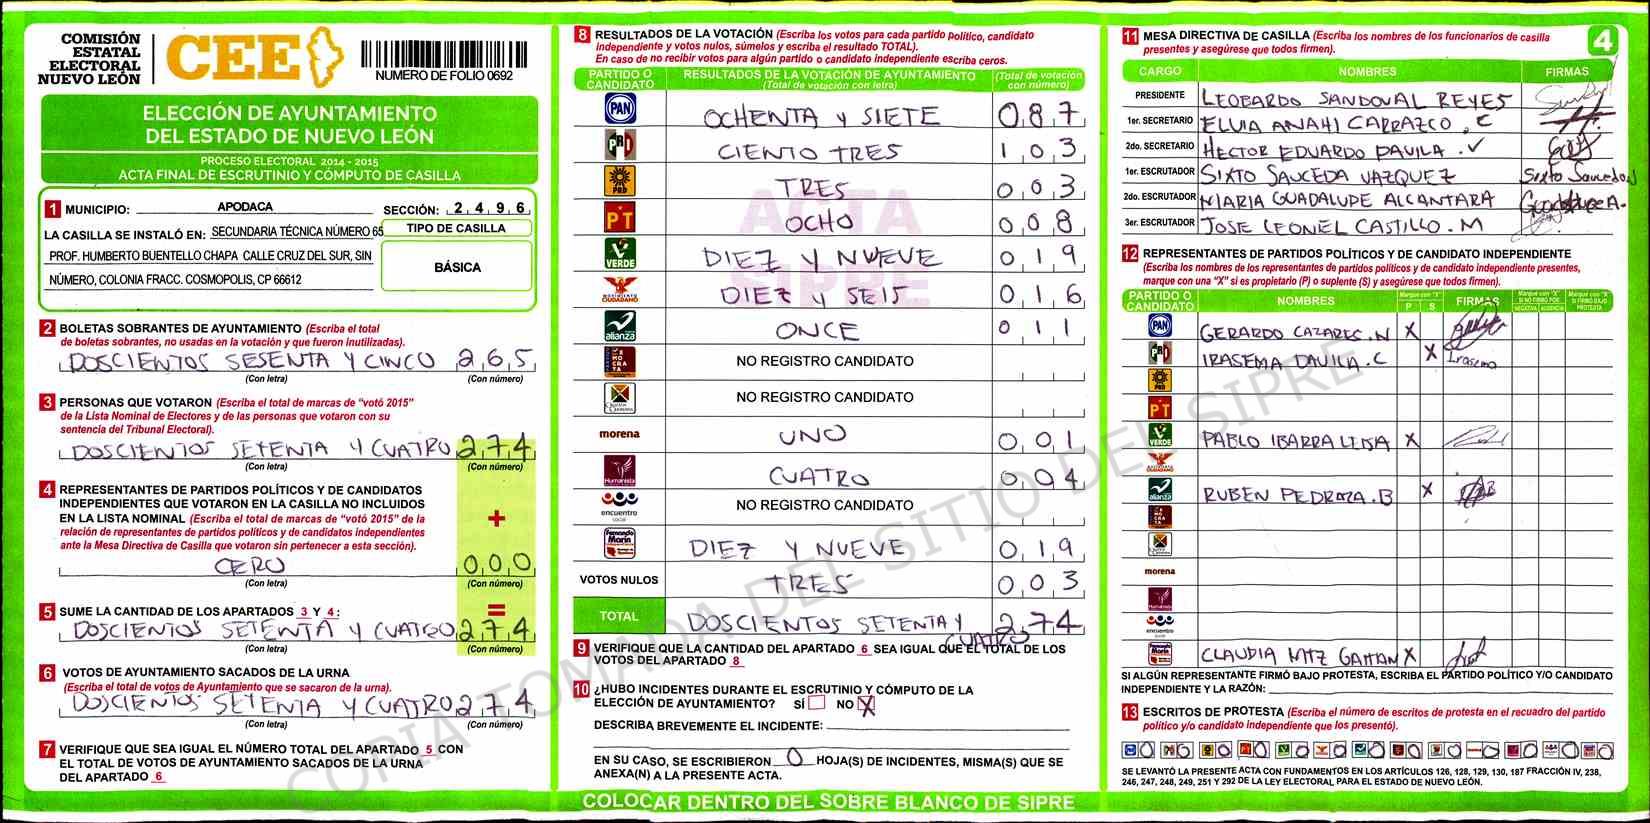 COMISIÓN
ESTATAL
ELECTORAL
NUEVO LEÓN
CEE
NUMERO DE FOLIO 0692
ELECCIÓN DE AYUNTAMIENTO
DEL ESTADO DE NUEVO LEÓN
PROCESO ELECTORAL 2014 - 2015
ACTA FINAL DE ESCRUTINIO Y CÓMPUTO DE CASILLA
1 MUNICIPIO: APODACA SECCIÓN: 2 4 9 6
LA CASILLA SE INSTALÓ EN: SECUNDARIA TÉCNICA NÚMERO 65
PROF. HUMBERTO BUENTELLO CHAPA CALLE CRUZ DEL SUR, SIN
NÚMERO, COLONIA FRACC. COSMOPOLIS, CP 66612
TIPO DE CASILLA
BÁSICA
2 BOLETAS SOBRANTES DE AYUNTAMIENTO (Escriba el total
de boletas sobrantes, no usadas en la votación y que fueron inutilizadas).
DOSCIENTOS SESENTA Y CINCO 2,6,5
(Con letra) (Con número)
3 PERSONAS QUE VOTARON (Escriba el total de marcas de "votó 2015"
de la Lista Nominal de Electores y de las personas que votaron con su
sentencia del Tribunal Electoral).
DOSCIENTOS SETENTA Y CUATRO 2,7,4
(Con letra) (Con número)
4 REPRESENTANTES DE PARTIDOS POLÍTICOS Y DE CANDIDATOS
INDEPENDIENTES QUE VOTARON EN LA CASILLA NO INCLUIDOS
EN LA LISTA NOMINAL (Escriba el total de marcas de "votó 2015" de la
relación de representantes de partidos políticos y de candidatos independientes
ante la Mesa Directiva de Casilla que votaron sin pertenecer a esta sección).
+
CERO 0,0,0
(Con letra) (Con número)
5 SUME LA CANTIDAD DE LOS APARTADOS 3 Y 4: =
DOSCIENTOS SETENTA Y CUATRO 2,7,4
(Con letra) (Con número)
6 VOTOS DE AYUNTAMIENTO SACADOS DE LA URNA
(Escriba el total de votos de Ayuntamiento que se sacaron de la urna).
DOSCIENTOS SETENTA Y CUATRO 2,7,4
(Con letra) (Con número)
7 VERIFIQUE QUE SEA IGUAL EL NÚMERO TOTAL DEL APARTADO 5 CON
EL TOTAL DE VOTOS DE AYUNTAMIENTO SACADOS DE LA URNA
DEL APARTADO 6
8 RESULTADOS DE LA VOTACIÓN (Escriba los votos para cada partido político, candidato
independiente y votos nulos, súmelos y escriba el resultado TOTAL).
En caso de no recibir votos para algún partido o candidato independiente escriba ceros.
PARTIDO O CANDIDATO
RESULTADOS DE LA VOTACIÓN DE AYUNTAMIENTO
(Total de votación con letra)
(Total de votación con número)
PAN OCHENTA Y SIETE 0,8,7
PRD CIENTO TRES 1,0,3
PRD TRES 0,0,3
PT OCHO 0,0,8
VERDE DIEZ Y NUEVE 0,1,9
MOVIMIENTO CIUDADANO DIEZ Y SEIS 0,1,6
alianza ONCE 0,1,1
NO REGISTRO CANDIDATO
NO REGISTRO CANDIDATO
morena UNO 0,0,1
Humanista CUATRO 0,0,4
encuentro social NO REGISTRO CANDIDATO
Fernando Marín DIEZ Y NUEVE 0,1,9
VOTOS NULOS TRES 0,0,3
TOTAL DOSCIENTOS SETENTA Y CUATRO 2,7,4
ACTA
SIPRE
9 VERIFIQUE QUE LA CANTIDAD DEL APARTADO 6 SEA IGUAL QUE EL TOTAL DE LOS
VOTOS DEL APARTADO 8
10 ¿HUBO INCIDENTES DURANTE EL ESCRUTINIO Y CÓMPUTO DE LA
ELECCIÓN DE AYUNTAMIENTO? SÍ NO X
DESCRIBA BREVEMENTE EL INCIDENTE:
EN SU CASO, SE ESCRIBIERON 0 HOJA(S) DE INCIDENTES, MISMA(S) QUE SE
ANEXA(N) A LA PRESENTE ACTA.
COLOCAR DENTRO DEL SOBRE BLANCO DE SIPRE
11 MESA DIRECTIVA DE CASILLA (Escriba los nombres de los funcionarios de casilla
presentes y asegúrese que todos firmen).
4
CARGO NOMBRES FIRMAS
PRESIDENTE LEOBARDO SANDOVAL REYES
1er. SECRETARIO ELVIA ANAHI CARRAZCO . C
2do. SECRETARIO HECTOR EDUARDO DAVILA . V
1er. ESCRUTADOR SIXTO SAUCEDA VAZQUEZ
2do. ESCRUTADOR MARIA GUADALUPE ALCANTARA Guadalupe A.
3er. ESCRUTADOR JOSE LEONEL CASTILLO . M
12 REPRESENTANTES DE PARTIDOS POLÍTICOS Y DE CANDIDATO INDEPENDIENTE
(Escriba los nombres de los representantes de partidos políticos y de candidato independiente presentes,
marque con una "X" si es propietario (P) o suplente (S) y asegúrese que todos firmen).
PARTIDO O CANDIDATO NOMBRES Marque con "X" P S FIRMAS Marque con "X" SI NO FIRMÓ POR: NEGATIVA AUSENCIA Marque con "X" SI FIRMÓ BAJO PROTESTA
PAN GERARDO CAZARES . N X
PRI IRASEMA DAVILA . C X Irasema
PRD
PT
VERDE PABLO IBARRA X
alianza RUBEN PEDRAZA . B X
morena
Humanista
encuentro social
CLAUDIA MTZ GAITAN X
SI ALGÚN REPRESENTANTE FIRMÓ BAJO PROTESTA, ESCRIBA EL PARTIDO POLÍTICO Y/O CANDIDATO
INDEPENDIENTE Y LA RAZÓN:
13 ESCRITOS DE PROTESTA (Escriba el número de escritos de protesta en el recuadro del partido
político y/o candidato independiente que los presentó).
SE LEVANTÓ LA PRESENTE ACTA CON FUNDAMENTOS EN LOS ARTÍCULOS 126, 128, 129, 130, 187 FRACCIÓN IV, 238,
246, 247, 248, 249, 251 Y 292 DE LA LEY ELECTORAL PARA EL ESTADO DE NUEVO LEÓN.
COPIA TOMADA DEL SITIO DEL SIPRE